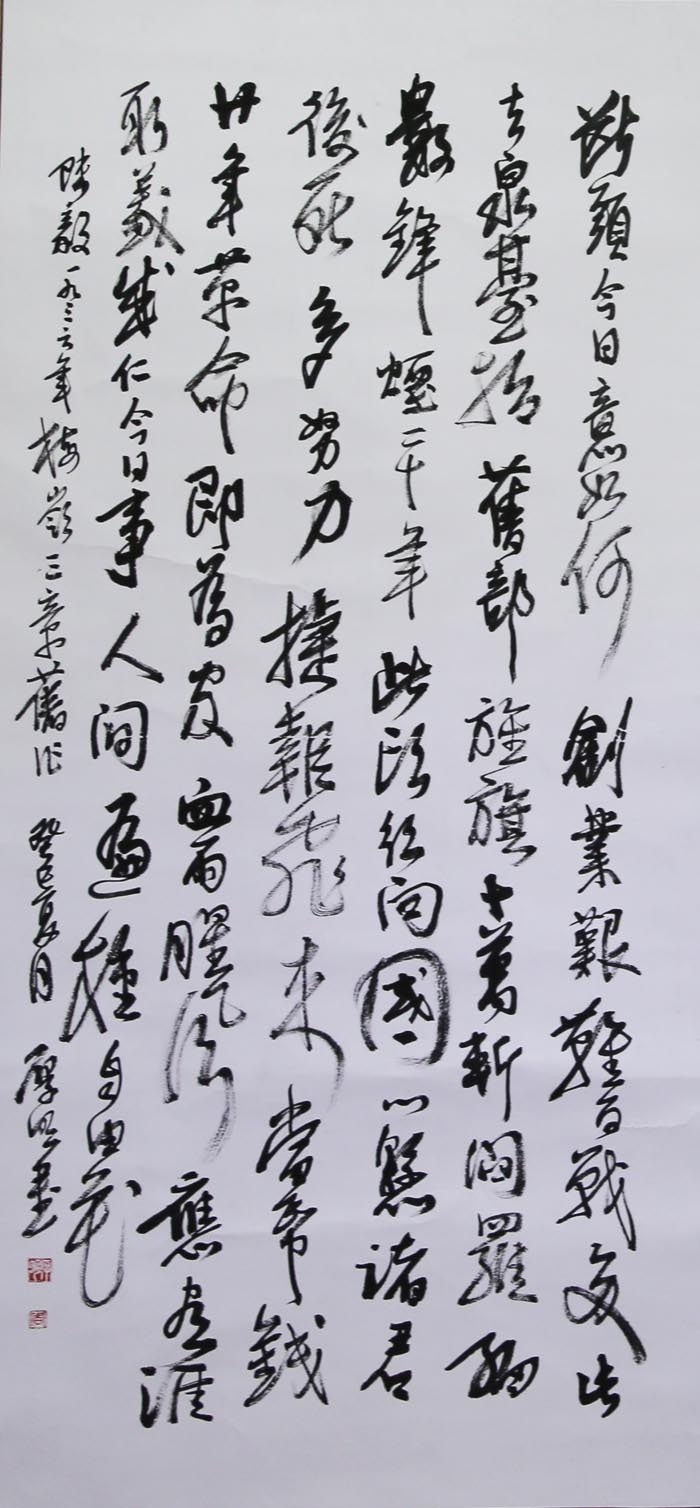 斷頭今日意如何創業艱難百戰多此
去泉臺招舊部旌旗十萬斬閻羅
數烽煙二十年此頭須向國門懸諸君
後死多努力捷報飛來當帋錢
廿年革命即為家血雨腥風應有涯
取義成仁今日事人間遍種自由花
陳毅一九三六年梅嶺三章舊作 癸巳夏月 厚書